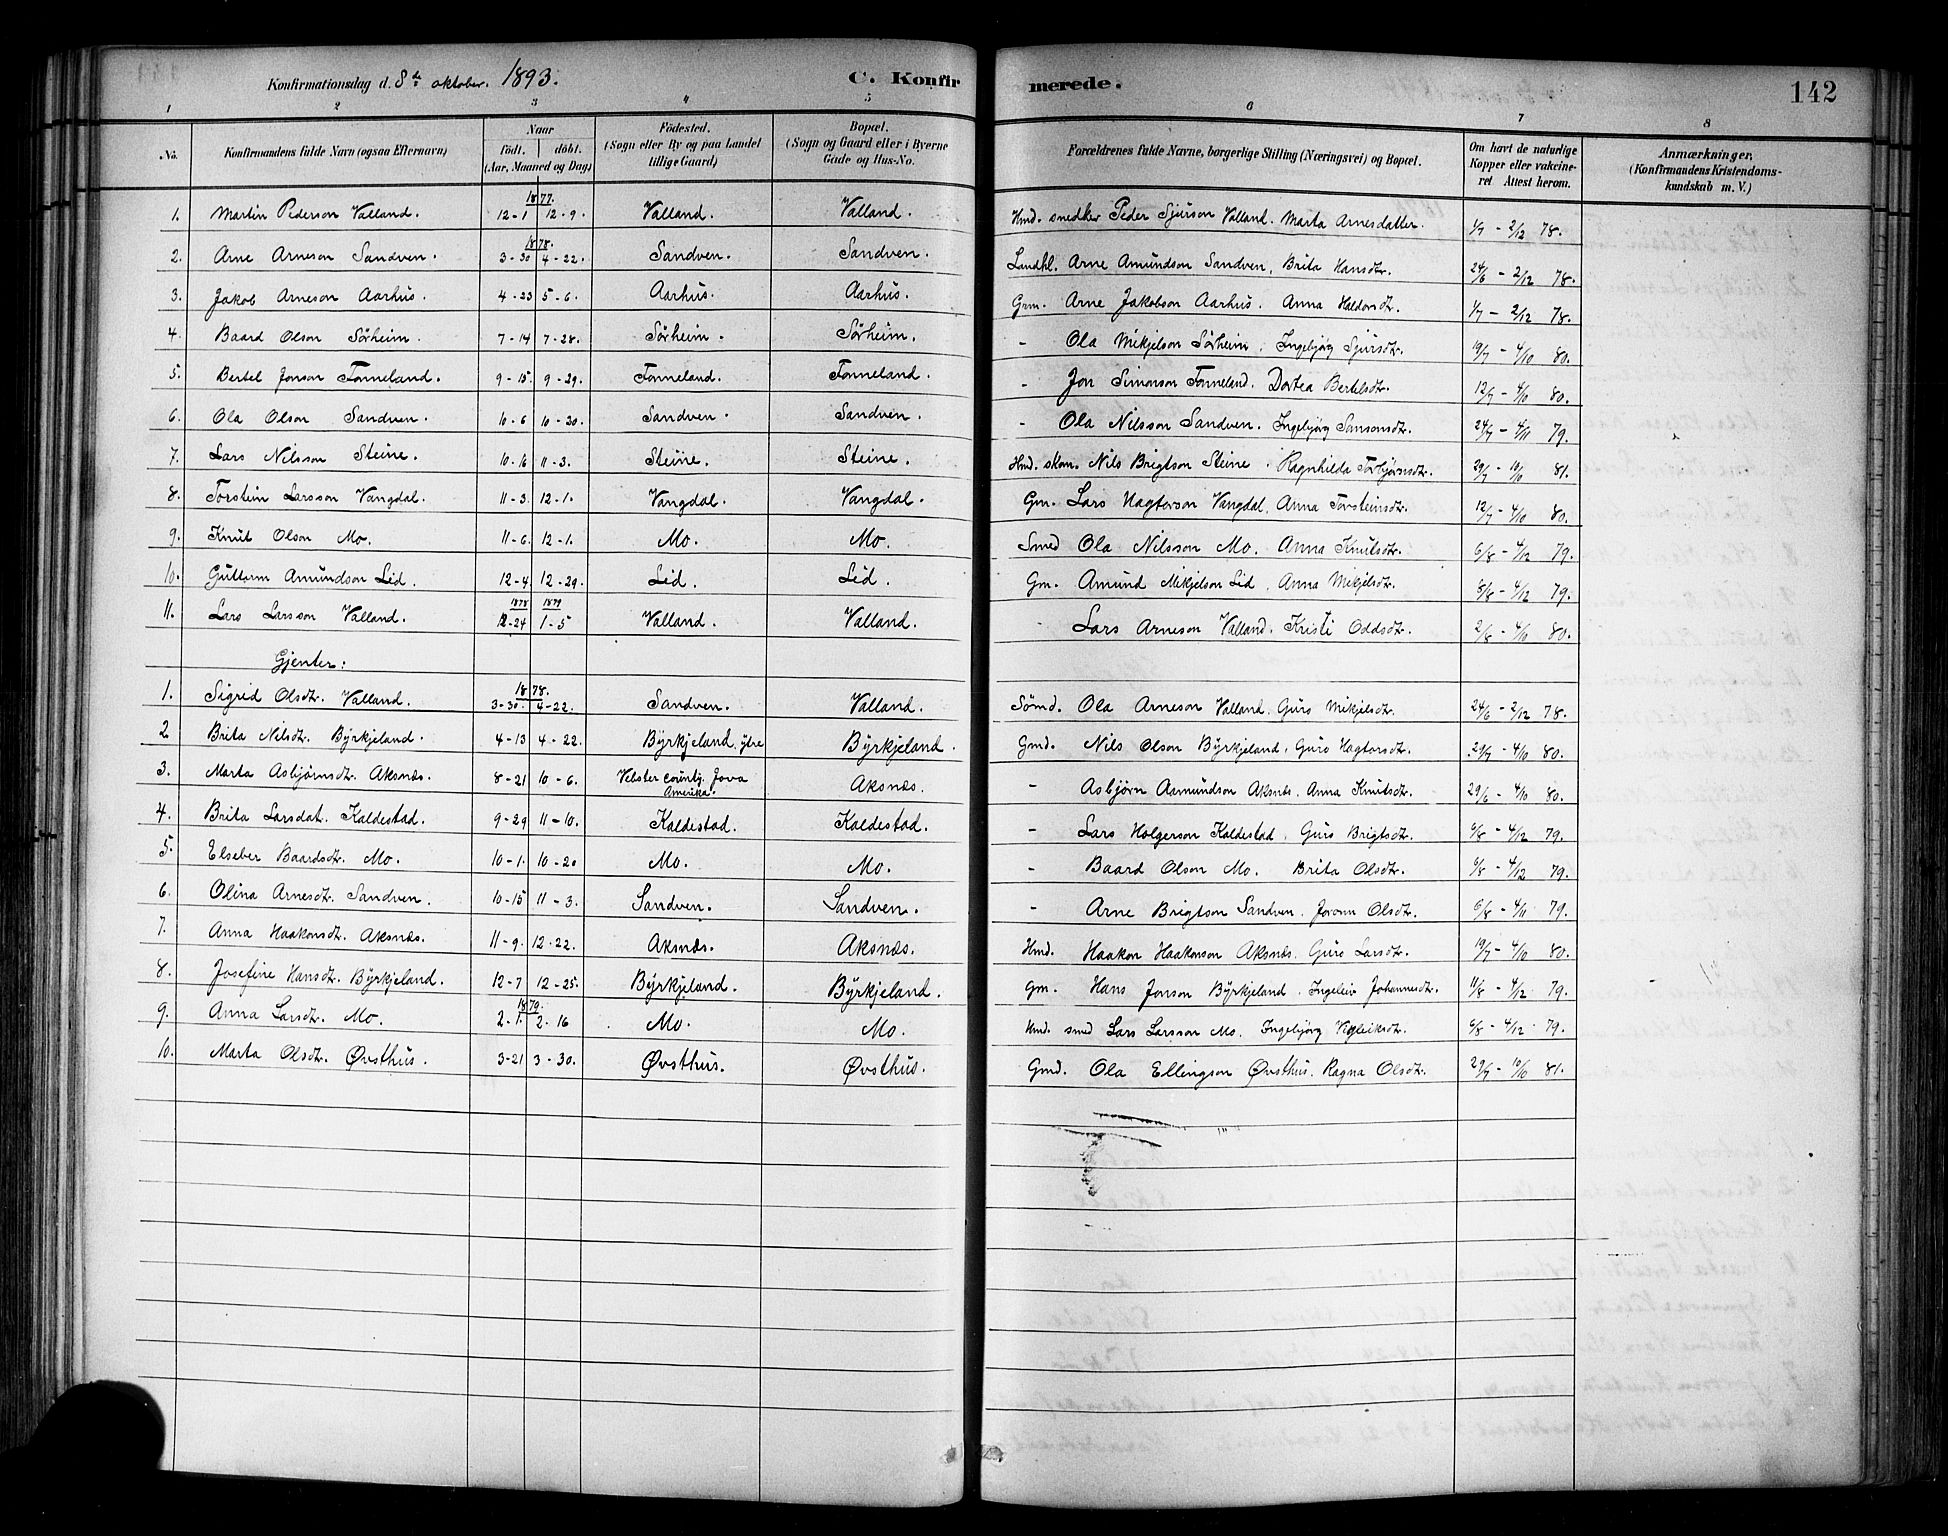 Konfirmationsdag d. 8de oktober. 1893. C. Konfirmerede. 142
1 2 3 4 5 6 7 8
No. Konfirmandens fulde Navn (ogsaa Efternavn) Naar födt. döbt. (Aar, Maaned og Dag) Födested. (Sogn eller By og paa Landet tillige Gaard) Bopæl. (Sogn og Gaard eller i Byerne Gade og Hus-No. Forældrenes fulde Navne, borgerlige Stilling (Næringsvei) og Bopæl. Om havt de naturlige Kopper eller vakcineret Attest herom. Anmærkninger. (Konfirmandens Kristendomskundskab m. V.)
1. Martin Pederson Valland. 1877. 12-1 12-9. Valland. Valland. Hmd. snedker Peder Sjurson Valland. Marta Arnesdatter. 1/7 - 2/12 78.
2. Arne Arneson Sandven. 1878. 3-30 4-22. Sandven. Sandven. Landhl. Arne Amundson Sandven, Brita Hansdtr. 24/6 - 2/12 78.
3. Jakob Arneson Aarhus. 4-23 5-6. Aarhus. Aarhus. Grm. Arne Jakobson Aarhus. Anna Haldorsdtr. 1/7 - 2/12 78.
4. Baard Olson Sörheim. 7-14 7-28. Sörheim. Sörheim. - Ola Mikjelson Sörheim. Ingebjörg Sjursdtr. 19/7 - 4/10 80.
5. Bertel Jonson Tonneland. 9-15. 9-29. Tonneland. Tonneland. - Jon Simonson Tonneland. Dortea Bertelsdtr. 12/7 - 4/10 80.
6. Ola Olson Sandven. 10-6 10-20. Sandven. Sandven. - Ola Nilsson Sandven. Ingebjörg Samsonsdtr. 24/7 - 4/11 79.
7. Lars Nilsson Steine. 10-16 11-3. Steine. Steine. Hmd. skom. Nils Brigtson Steine. Ragnhilda Torbjörnsdtr. 29/7 - 10/6 81.
8. Torstein Larsson Vangdal. 11-3. 12-1. Vangdal. Vangdal. Gm. Lars Hagtorson Vangdal. Anna Torsteinsdtr. 12/7 - 4/10 80.
9. Knut Olson Mo. 11-6. 12-1. Mo. Mo. Smed Ola Nilsson Mo. Anna Knutsdtr. 6/8 - 4/12 79.
10. Guttorm Amundson Lid. 12-4. 12-29. Lid. Lid. Gm. Amund Mikjelson Lid. Anna Mikjelsdtr. 8/8 - 4/12 79.
11. Lars Larsson Valland. 1878 12-24 1879 1-5 Valland. Valland. - Lars Arneson Valland. Kristi Oddsdtr. 2/8 - 4/10 80.
Gjenter:
1. Sigrid Olsdtr. Valland. 1878. 3-30. 4-22. Sandven. Valland. Sömd. Ola Arneson Valland. Guro Mikjelsdtr. 24/6 - 2/12 78.
2. Brita Nilsdtr. Byrkjeland. 4-13 4-22. Byrkjeland, ytre Byrkjeland. Gmd. Nils Olson Byrkjeland, Guro Hagtorsdtr. 29/7 - 4/10 80.
3. Marta Asbjörnsdtr. Aksnæs. 8-21 10-6. Velster county. Jova Amerika. Aksnæs. - Asbjörn Asmundson Aksnæs. Anna Knutsdtr. 29/6 - 4/10 80.
4. Brita Larsdat. Kaldestad. 9-29 11-10. Kaldestad. Kaldestad. - Lars Holgerson Kaldestad. Guro Brigtsdtr. 6/8 - 4/12 79.
5. Elseber Baardsdtr. Mo. 10-1. 10-20 Mo. Mo. - Baard Olson Mo. Brita Olsdtr. 6/8 - 4/12 79.
6. Olina Arnesdtr. Sandven. 10-15 11-3. Sandven. Sandven. - Arne Brigtson Sandven. Jorunn Olsdtr. 6/8 - 4/11 79.
7. Anna Haakonsdtr. Aksnæs. 11-9. 12-22. Aksnæs. Aksnæs. Hmd. Haakon Haakonson Aksnæs. Guro Larsdtr. 19/7 - 4/10 80.
8. Josefine Hansdtr. Byrkjeland. 12-7 12-25. Byrkjeland. Byrkjeland. Gm. Hans Jonson Byrkjeland. Ingeleiv Johannesdtr. 11/8 - 4/12 79.
9. Anna Larsdtr. Mo. 1879. 2-1. 2-16 Mo. Mo. Hmd. smed Lars Larsson Mo. Ingebjörg Vigleiksdtr. 6/8 - 4/12 79.
10. Marta Olsdtr. Øvsthus. 3-21 3-30. Øvsthus. Øvsthus. Gmd. Ola Ellingson Øvsthus. Ragna Olsdtr. 29/7 - 10/6 81.